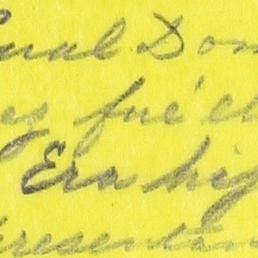 cual Don
es fué el
Era hij
presentan